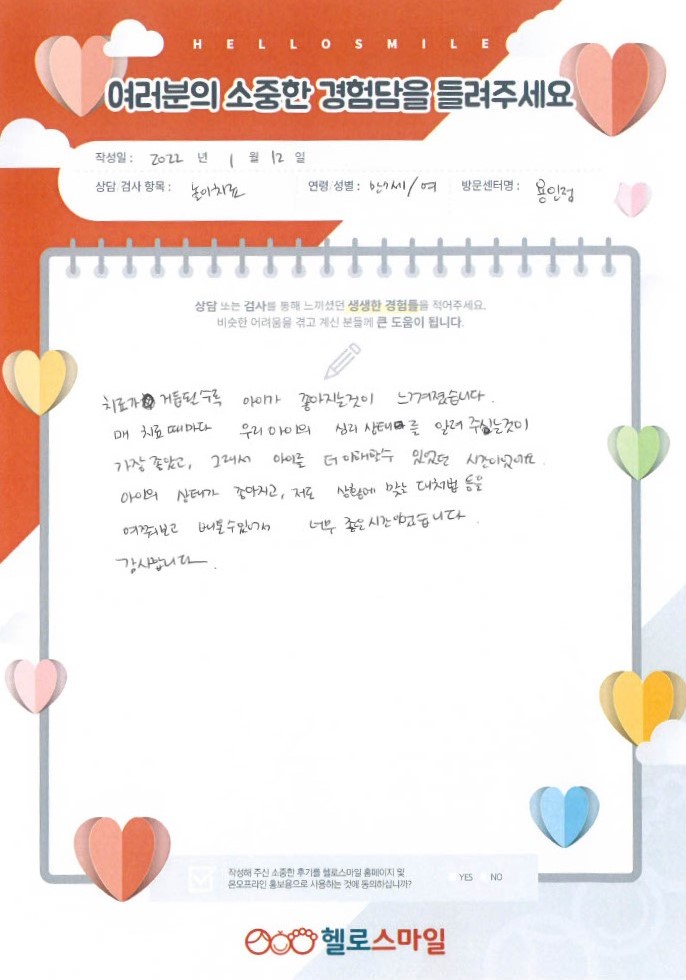 HELLOSMILE
여러분의 소중한 경험담을 들려주세요
작성일 : 2022 년 1 월 12 일
상담/검사 항목 : 놀이치료 연령/성별 : 만7세/여 방문센터명 : 용인점
상담 또는 검사를 통해 느끼셨던 생생한 경험들을 적어주세요.
비슷한 어려움을 겪고 계신 분들께 큰 도움이 됩니다.
치료가 거듭될수록 아이가 좋아지는것이 느껴졌습니다.
매 치료때마다 우리아이의 심리상태를 알려주시는것이
가장 좋았고, 그래서 아이를 더 이해할수 있었던 시간이었어요.
아이의 상태가 좋아지고, 저도 상황에 맞는 대처법 등을
여쭤보고 배울수있어서 너무 좋은시간이었습니다.
감사합니다.
작성해 주신 소중한 후기를 헬로스마일 홈페이지 및
온오프라인 홍보용으로 사용하는 것에 동의하십니까? YES NO
헬로스마일